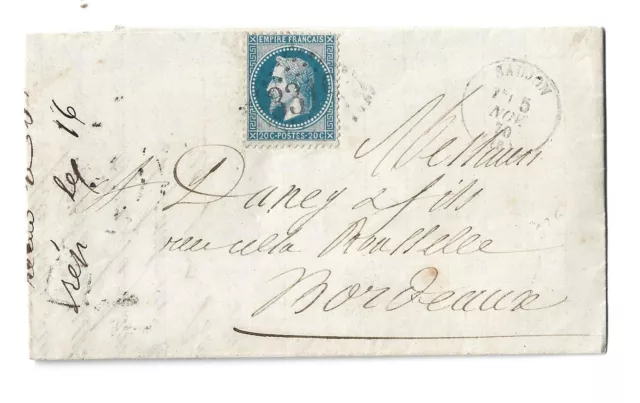 EMPIRE FRANÇAIS
20C-POSTES-20C
33
SAUJON
5
NOV
70
Messieurs
Daney & fils
rue de la Rousselle
Bordeaux
le 16